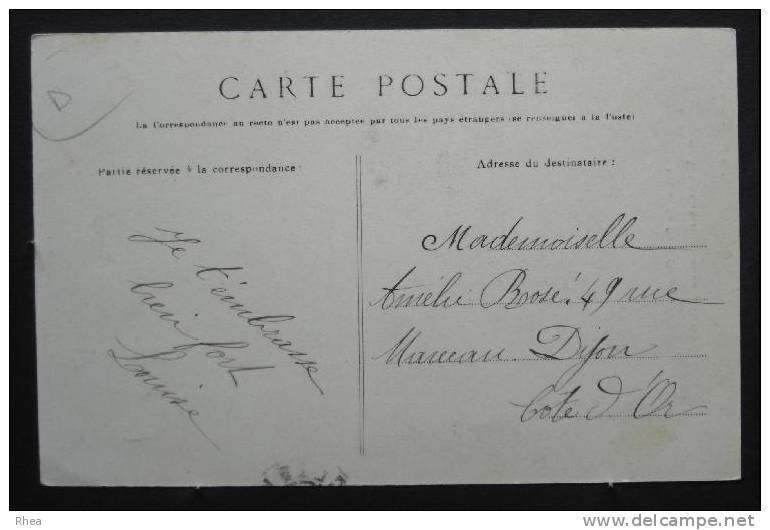 CARTE POSTALE
La Correspondance au recto n'est pas acceptée par tous les pays étrangers (se renseigner à la Poste)
Partie réservée à la correspondance
Adresse du destinataire :
Je t'embrasse
bien fort
Louise
Mademoiselle
Amélie Brosé. 49 rue
Marceau. Dijon
Cote d'Or
Rhea
delcampe.net